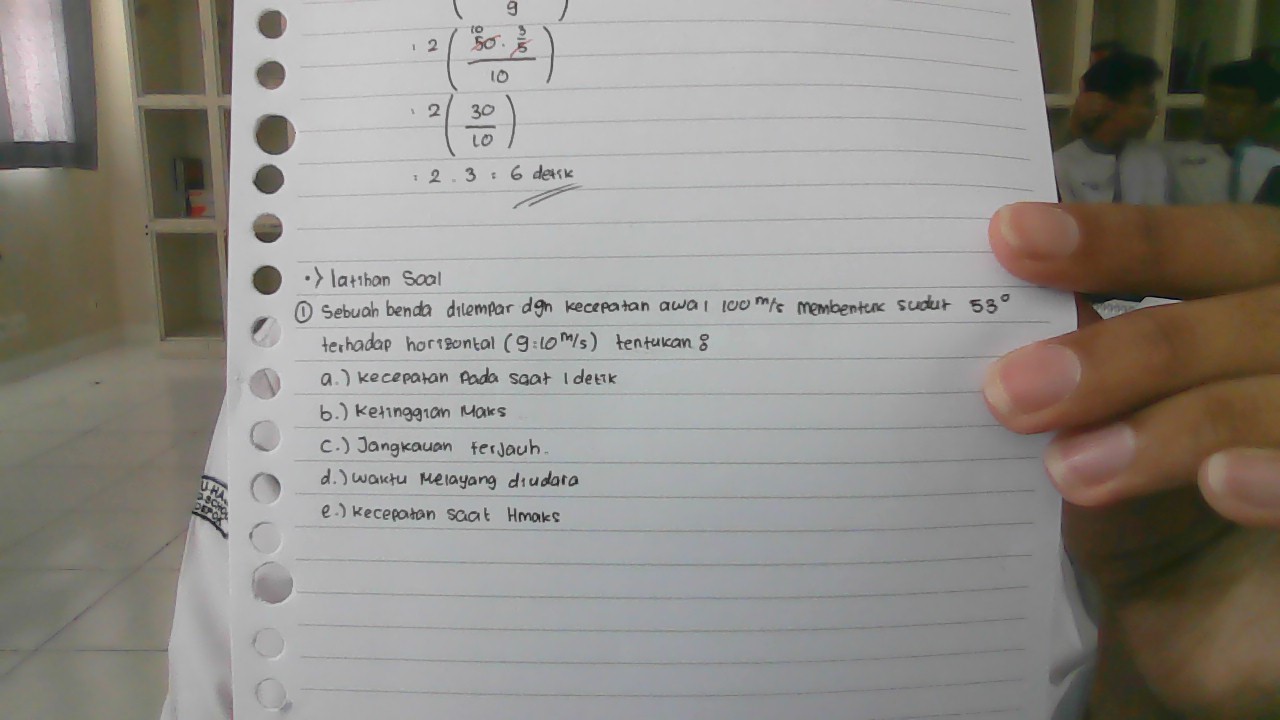 g
: 2 ( 10 50 . 3/5 / 10 )
: 2 ( 30 / 10 )
: 2 . 3 : 6 detik
•> latihan Soal
① Sebuah benda dilempar dgn kecepatan awal 100 m/s membentuk sudut 53°
terhadap horizontal (g:10 m/s) tentukan :
a.) kecepatan pada saat 1 detik
b.) ketinggian Maks
c.) Jangkauan terjauh.
d.) waktu Melayang diudara
e.) kecepatan saat Hmaks